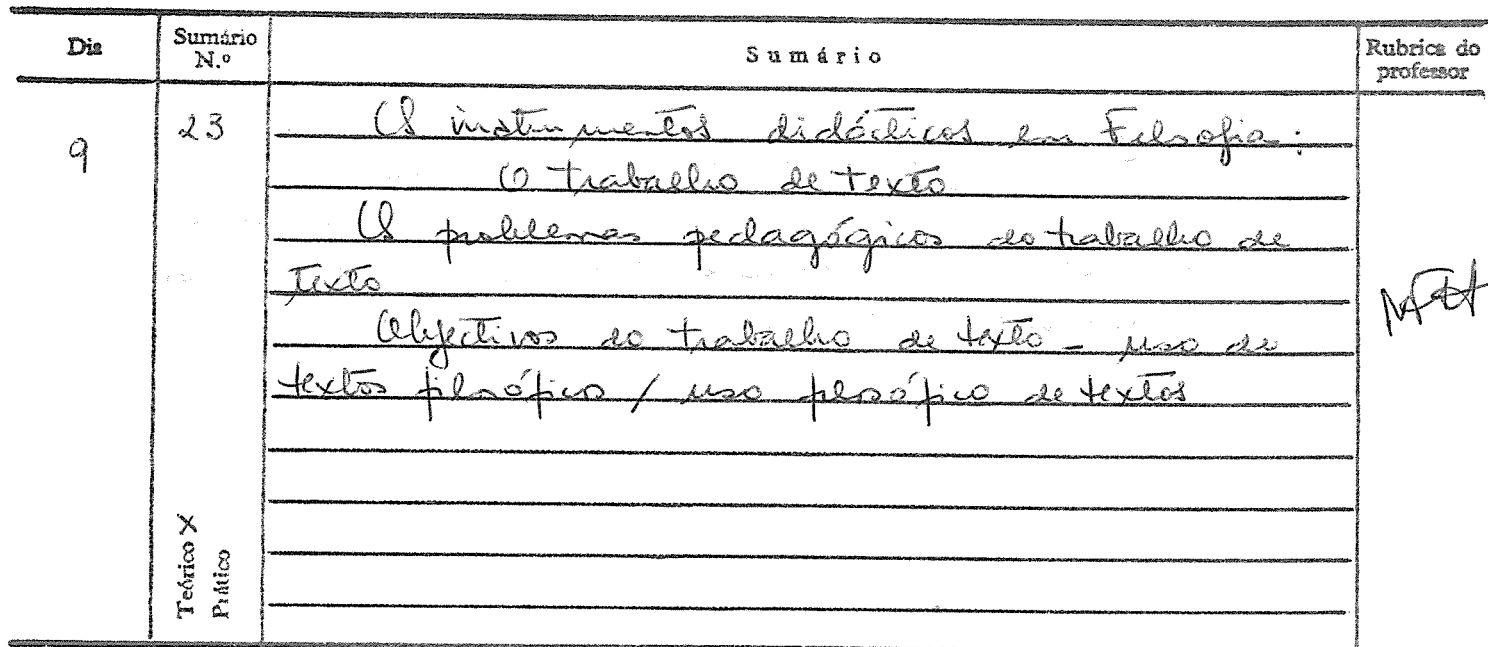 Dia Sumário N.º Sumário Rubrica do professor
9 23 Os instrumentos didácticos em Filosofia:
O trabalho de texto
Os problemas pedagógicos do trabalho de
texto
Objectivos do trabalho de texto - uso de
textos filosóficos / uso filosófico de textos
Teórico X
Prático